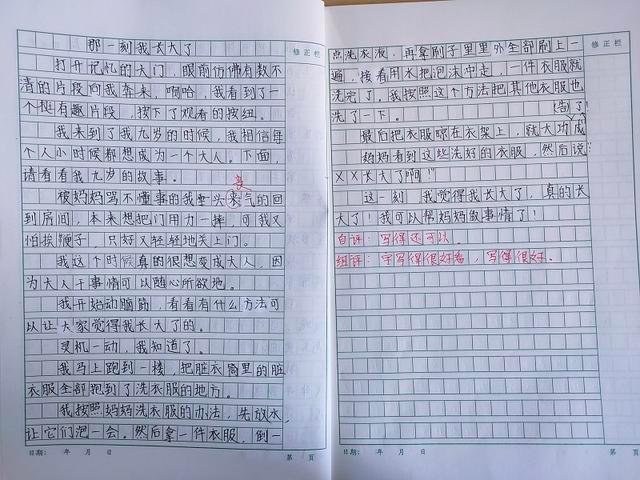 那一刻我长大了
修正栏
打开记忆的大门，眼前仿佛有数不
清的片段向我奔来，啊哈，我看到了一
个挺有趣片段，按下了观看的按纽。
我来到了我九岁的时候，我相信每
个人小时候都想成为一个大人。下面，
请看看我九岁的故事。
丧
被妈妈骂不懂事的我垂头丧气的回
到房间，本来想把门用力一摔，可我又
怕挨鞭子，只好又轻轻地关上门。
我这个时候真的很想变成大人，因
为大人干事情可以随心所欲地。
我开始动脑筋，看看有什么方法可
以让大家觉得我长大了的。
灵机一动，我知道了。
我马上跑到一楼，把脏衣筒里的脏
衣服全部抱到了洗衣服的地方。
我按照妈妈洗衣服的办法，先放水，
让它们泡一会。然后拿一件衣服，倒一
日期： 年 月 日
第 页
修正栏
点洗衣液，再拿刷子里里外全部刷上一
遍，接着用水把泡沫中走，一件衣服就
洗完了，我按照这个方法把其他衣服也
洗了一下。
告了！
最后把衣服晾在衣架上，就大功成
妈妈看到这些洗好的衣服，然后说：
“××长大了啊！”
这一刻，我觉得我长大了，真的长
大了！我可以帮妈妈做事情了！
自评：写得还可以。
组评：字写得很好看，写得很好。
日期： 年 月 日
第 页